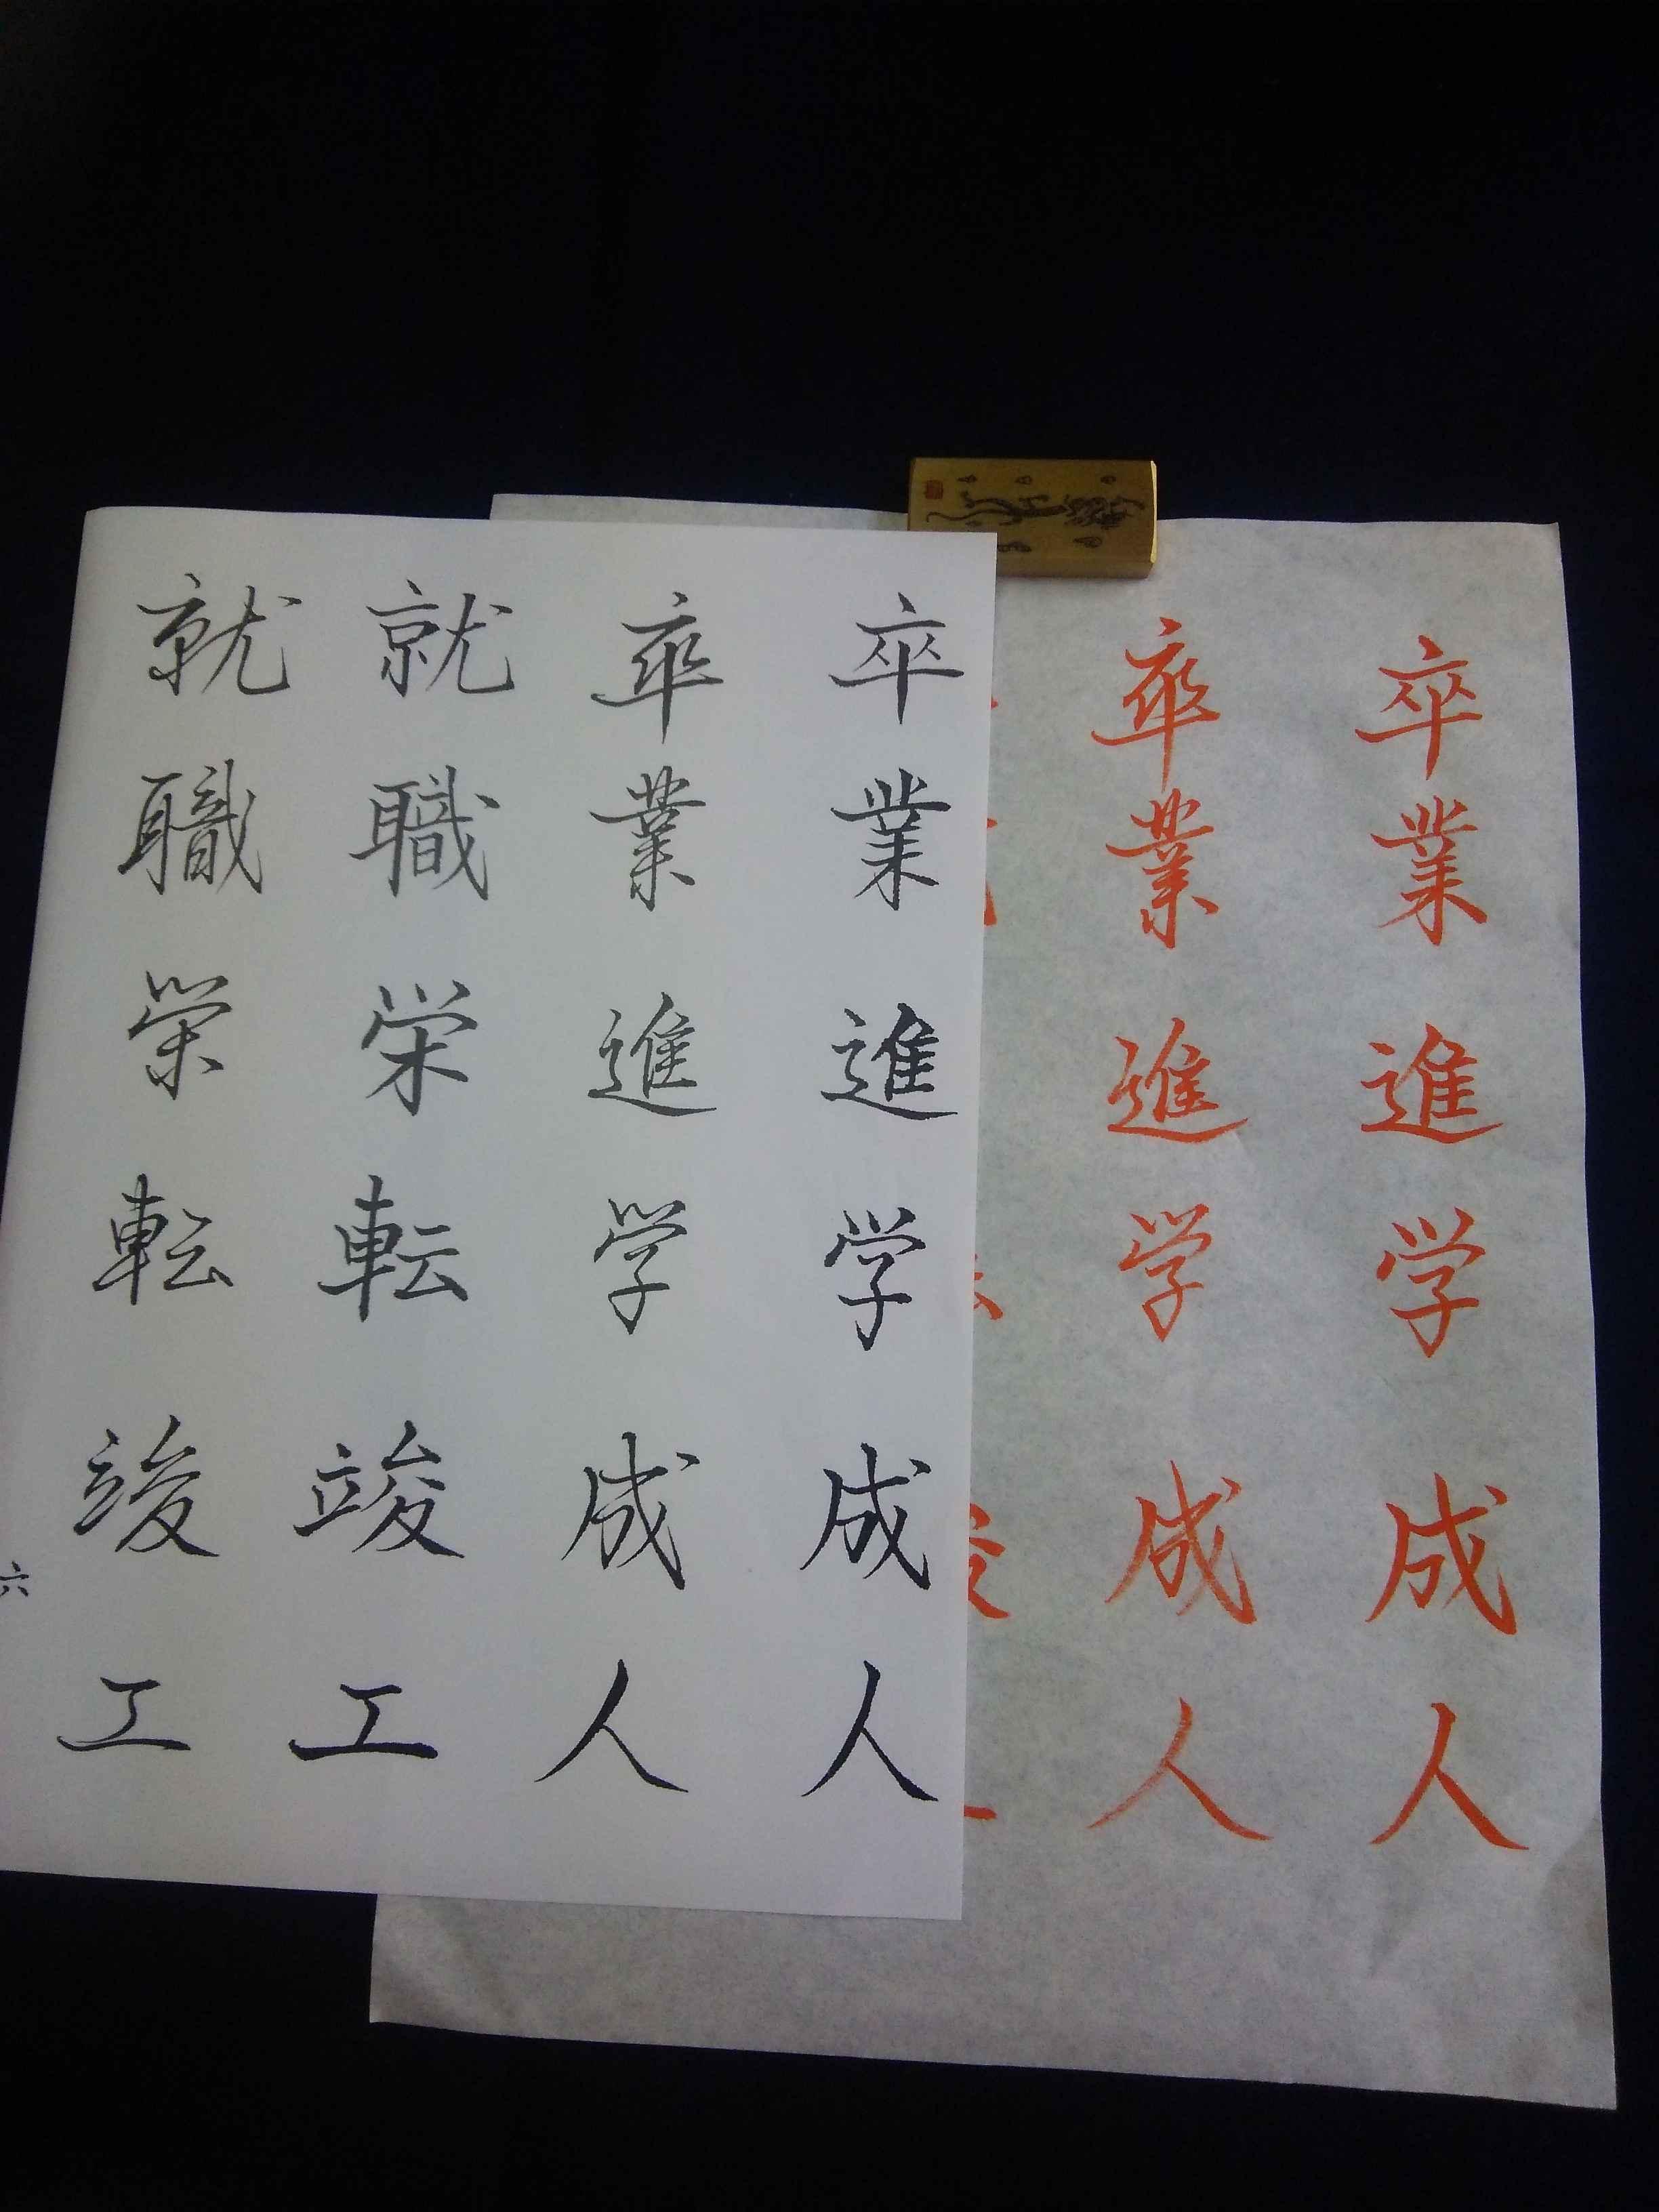 卒業進学成人
卒業進学成人
卒業進学成人
卒業進学成人
就職栄転竣工
就職栄転竣工
六